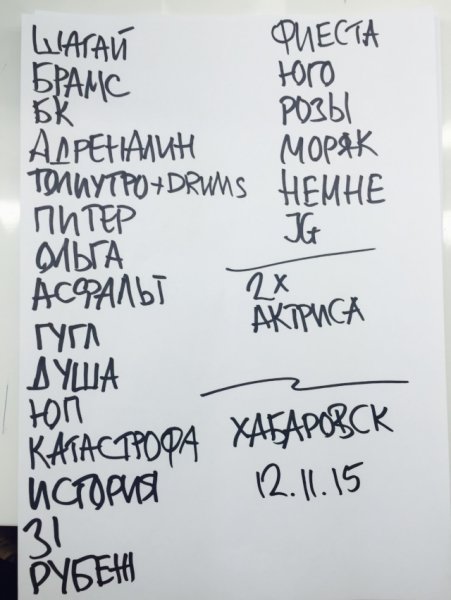 ШАГАЙ
БРАМС
БК
АДРЕНАЛИН
ТОЛИУТРО+DRUMS
ПИТЕР
ОЛЬГА
АСФАЛЬТ
ГУГЛ
ДУША
ЮП
КАТАСТРОФА
ИСТОРИЯ
31
РУБЕЖ
ФИЕСТА
ЮГО
РОЗЫ
МОРЯК
НЕМНЕ
JG
2X
АКТРИСА
ХАБАРОВСК
12.11.15